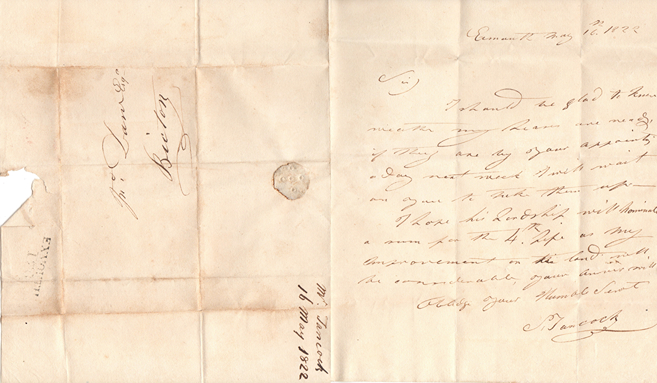 Exmouth May 16th 1822
Sir
I should be glad to know
my Leases are ready
if they are by your appointg
a day next week I will meet
you to take them up
I hope his Lordship will nominate
a man for the 4th Life as my
improvement on the land will
be considerable your answer will
Oblige your Humble Servt
P. Tancock
Mr Tancock
16 May 1822
Danl Esqr
Bicton
EXMOUTH